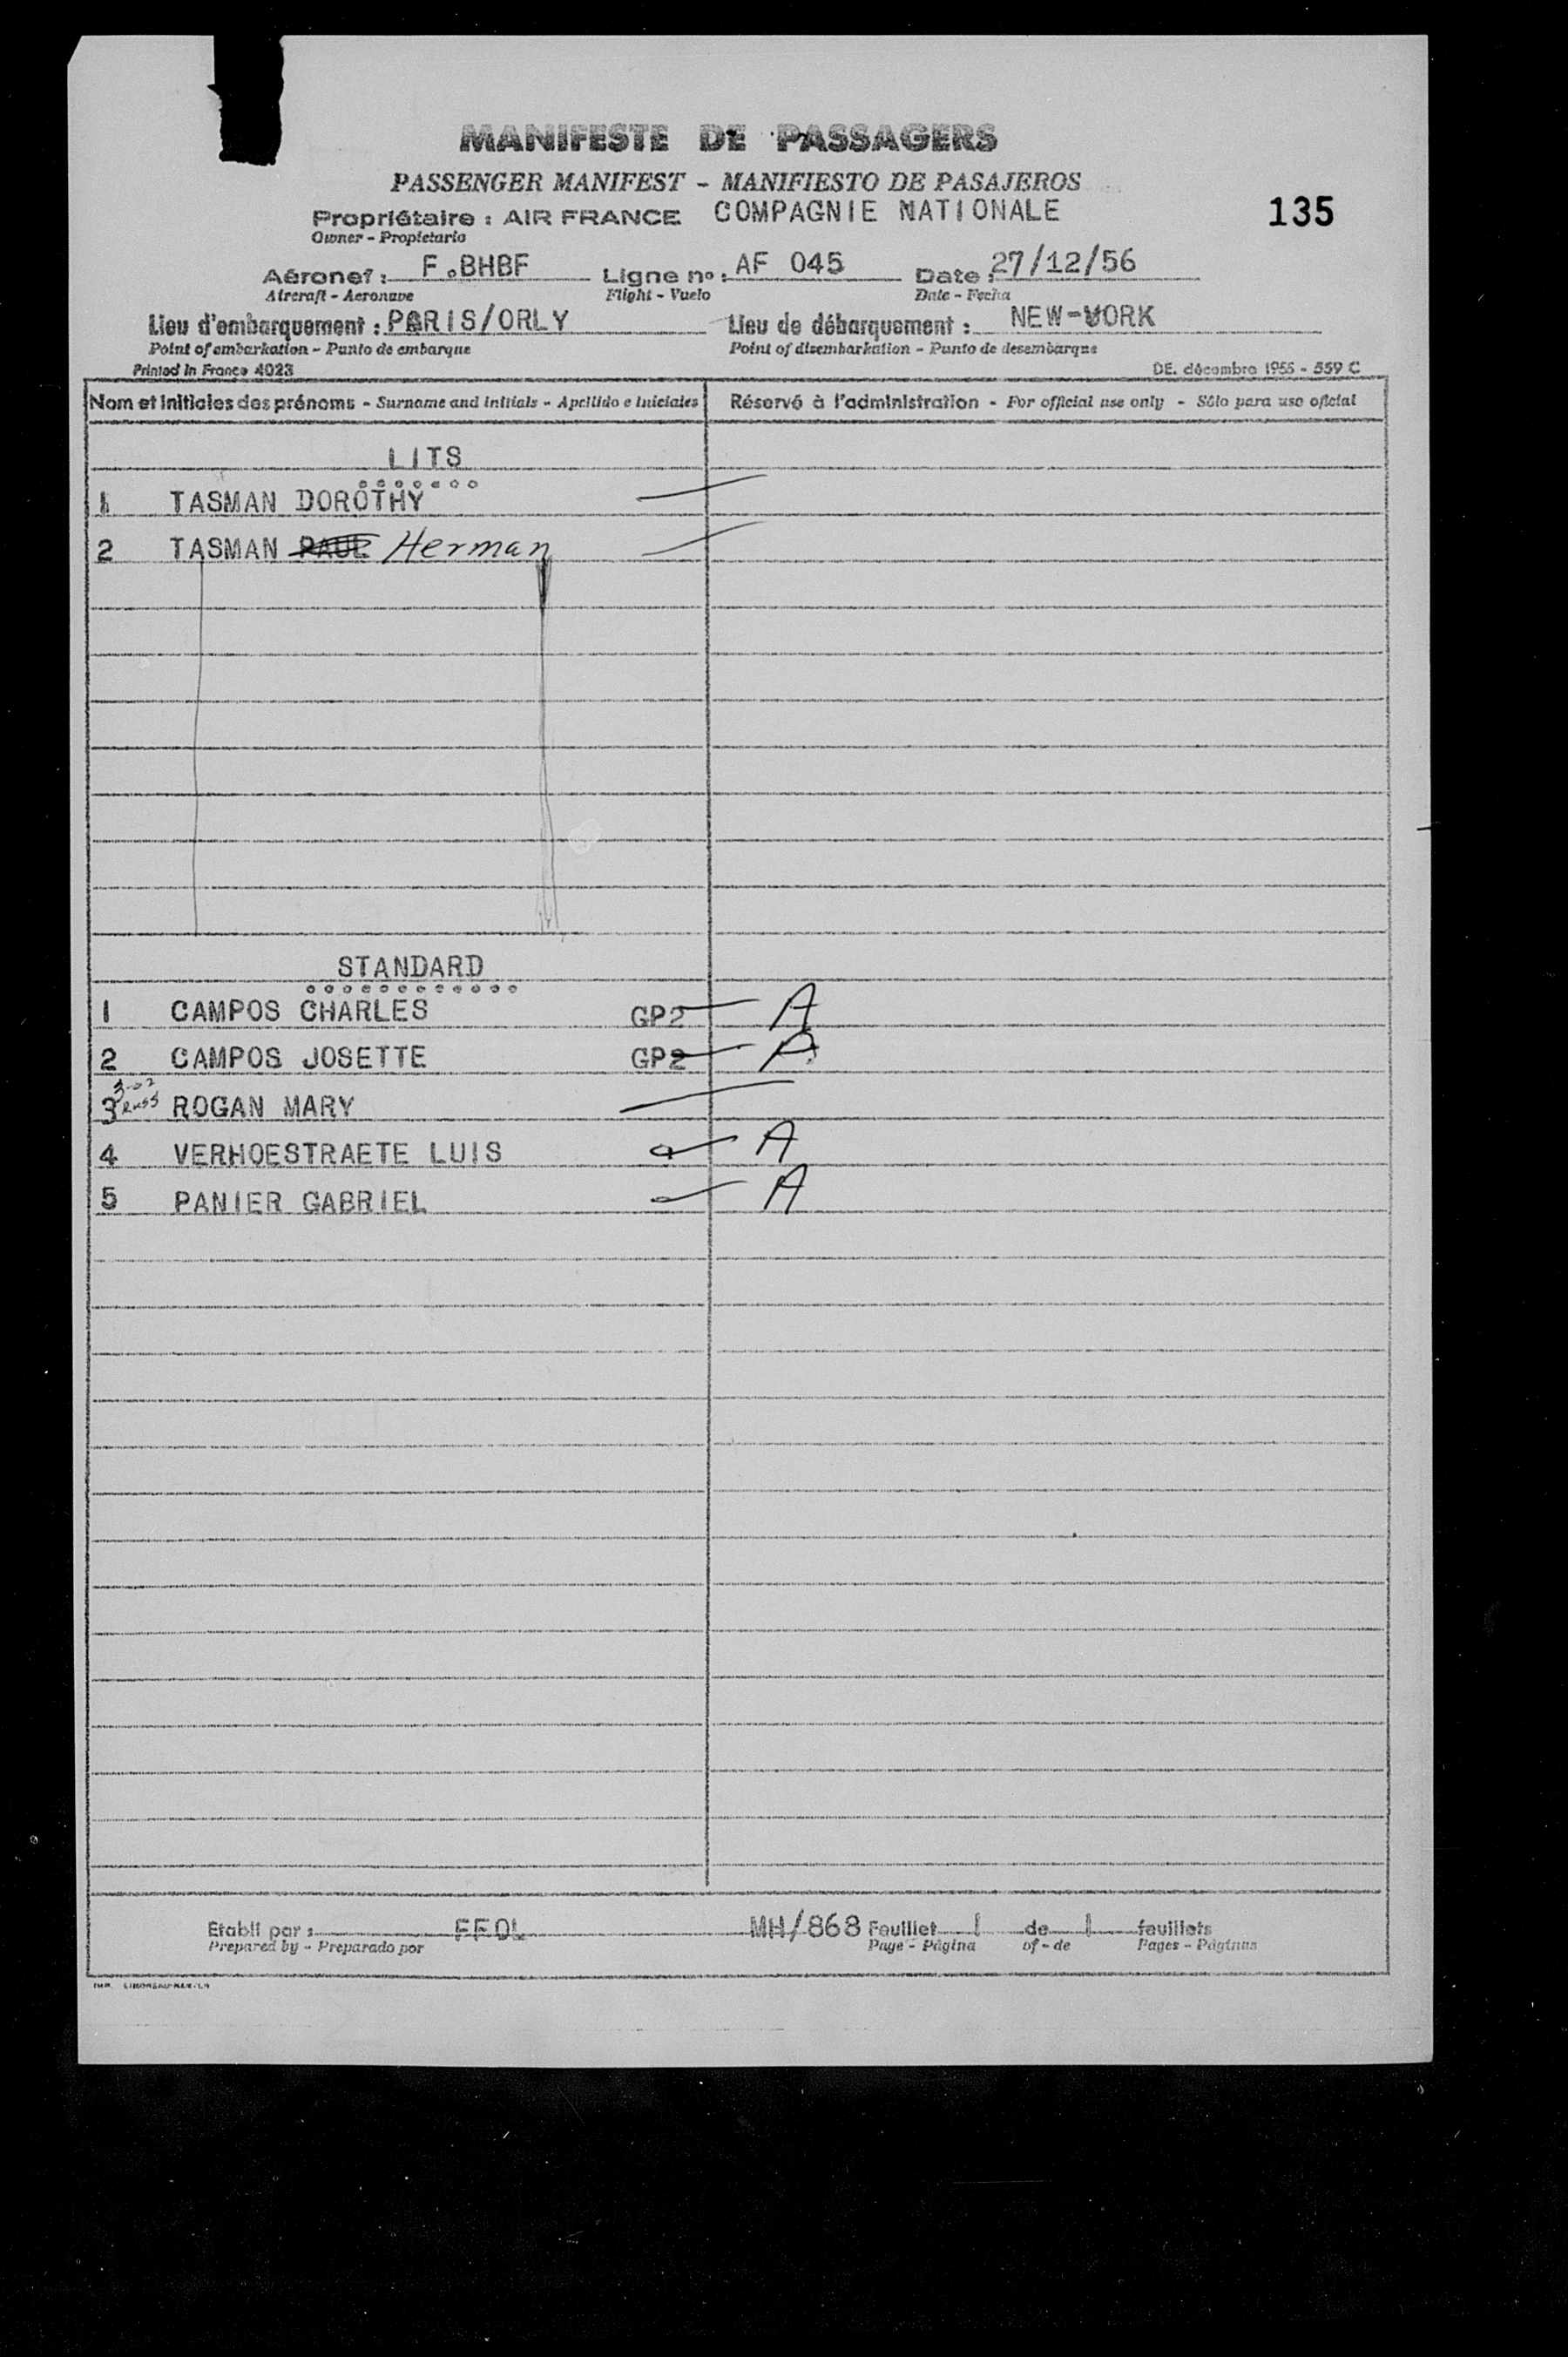 MANIFESTE DE PASSAGERS
PASSENGER MANIFEST - MANIFIESTO DE PASAJEROS
Propriétaire : AIR FRANCE COMPAGNIE NATIONALE
135
Owner - Propietario
Aéronef : F.BHBF Ligne n° : AF 045 Date : 27/12/56
Aircraft - Aeronave Flight - Vuelo Date - Fecha
Lieu d'embarquement : PARIS/ORLY Lieu de débarquement : NEW-YORK
Point of embarkation - Punto de embarque Point of disembarkation - Punto de desembarque
Printed in France 4023 DE. décembre 1955 - 559 C
Nom et initiales des prénoms - Surname and initials - Apellido e iniciales Réservé à l'administration - For official use only - Sólo para uso oficial
LITS
1 TASMAN DOROTHY
2 TASMAN PAUL Herman
STANDARD
1 CAMPOS CHARLES GP2 A
2 CAMPOS JOSETTE GP2 A
3 ROGAN MARY
4 VERHOESTRAETE LUIS A
5 PANIER GABRIEL A
Etabli par : FFOL MH/868 Feuillet 1 de 1 feuillets
Prepared by - Preparado por Page - Página of - de Pages - Páginas